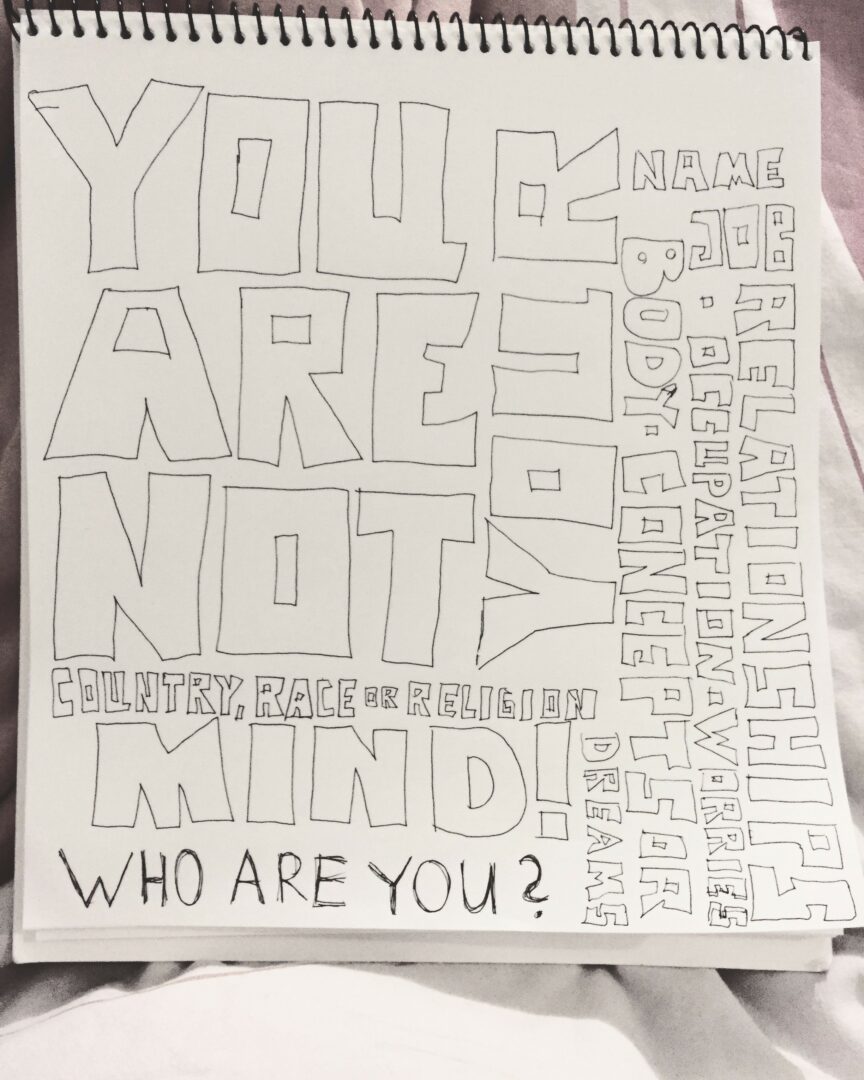 YOU
ARE
NOT
YOUR
NAME
JOB
BODY. CONCEPTS OR
DREAMS
. OCCUPATION. WORRIES
RELATIONSHIPS
COUNTRY, RACE OR RELIGION
MIND!
WHO ARE YOU?